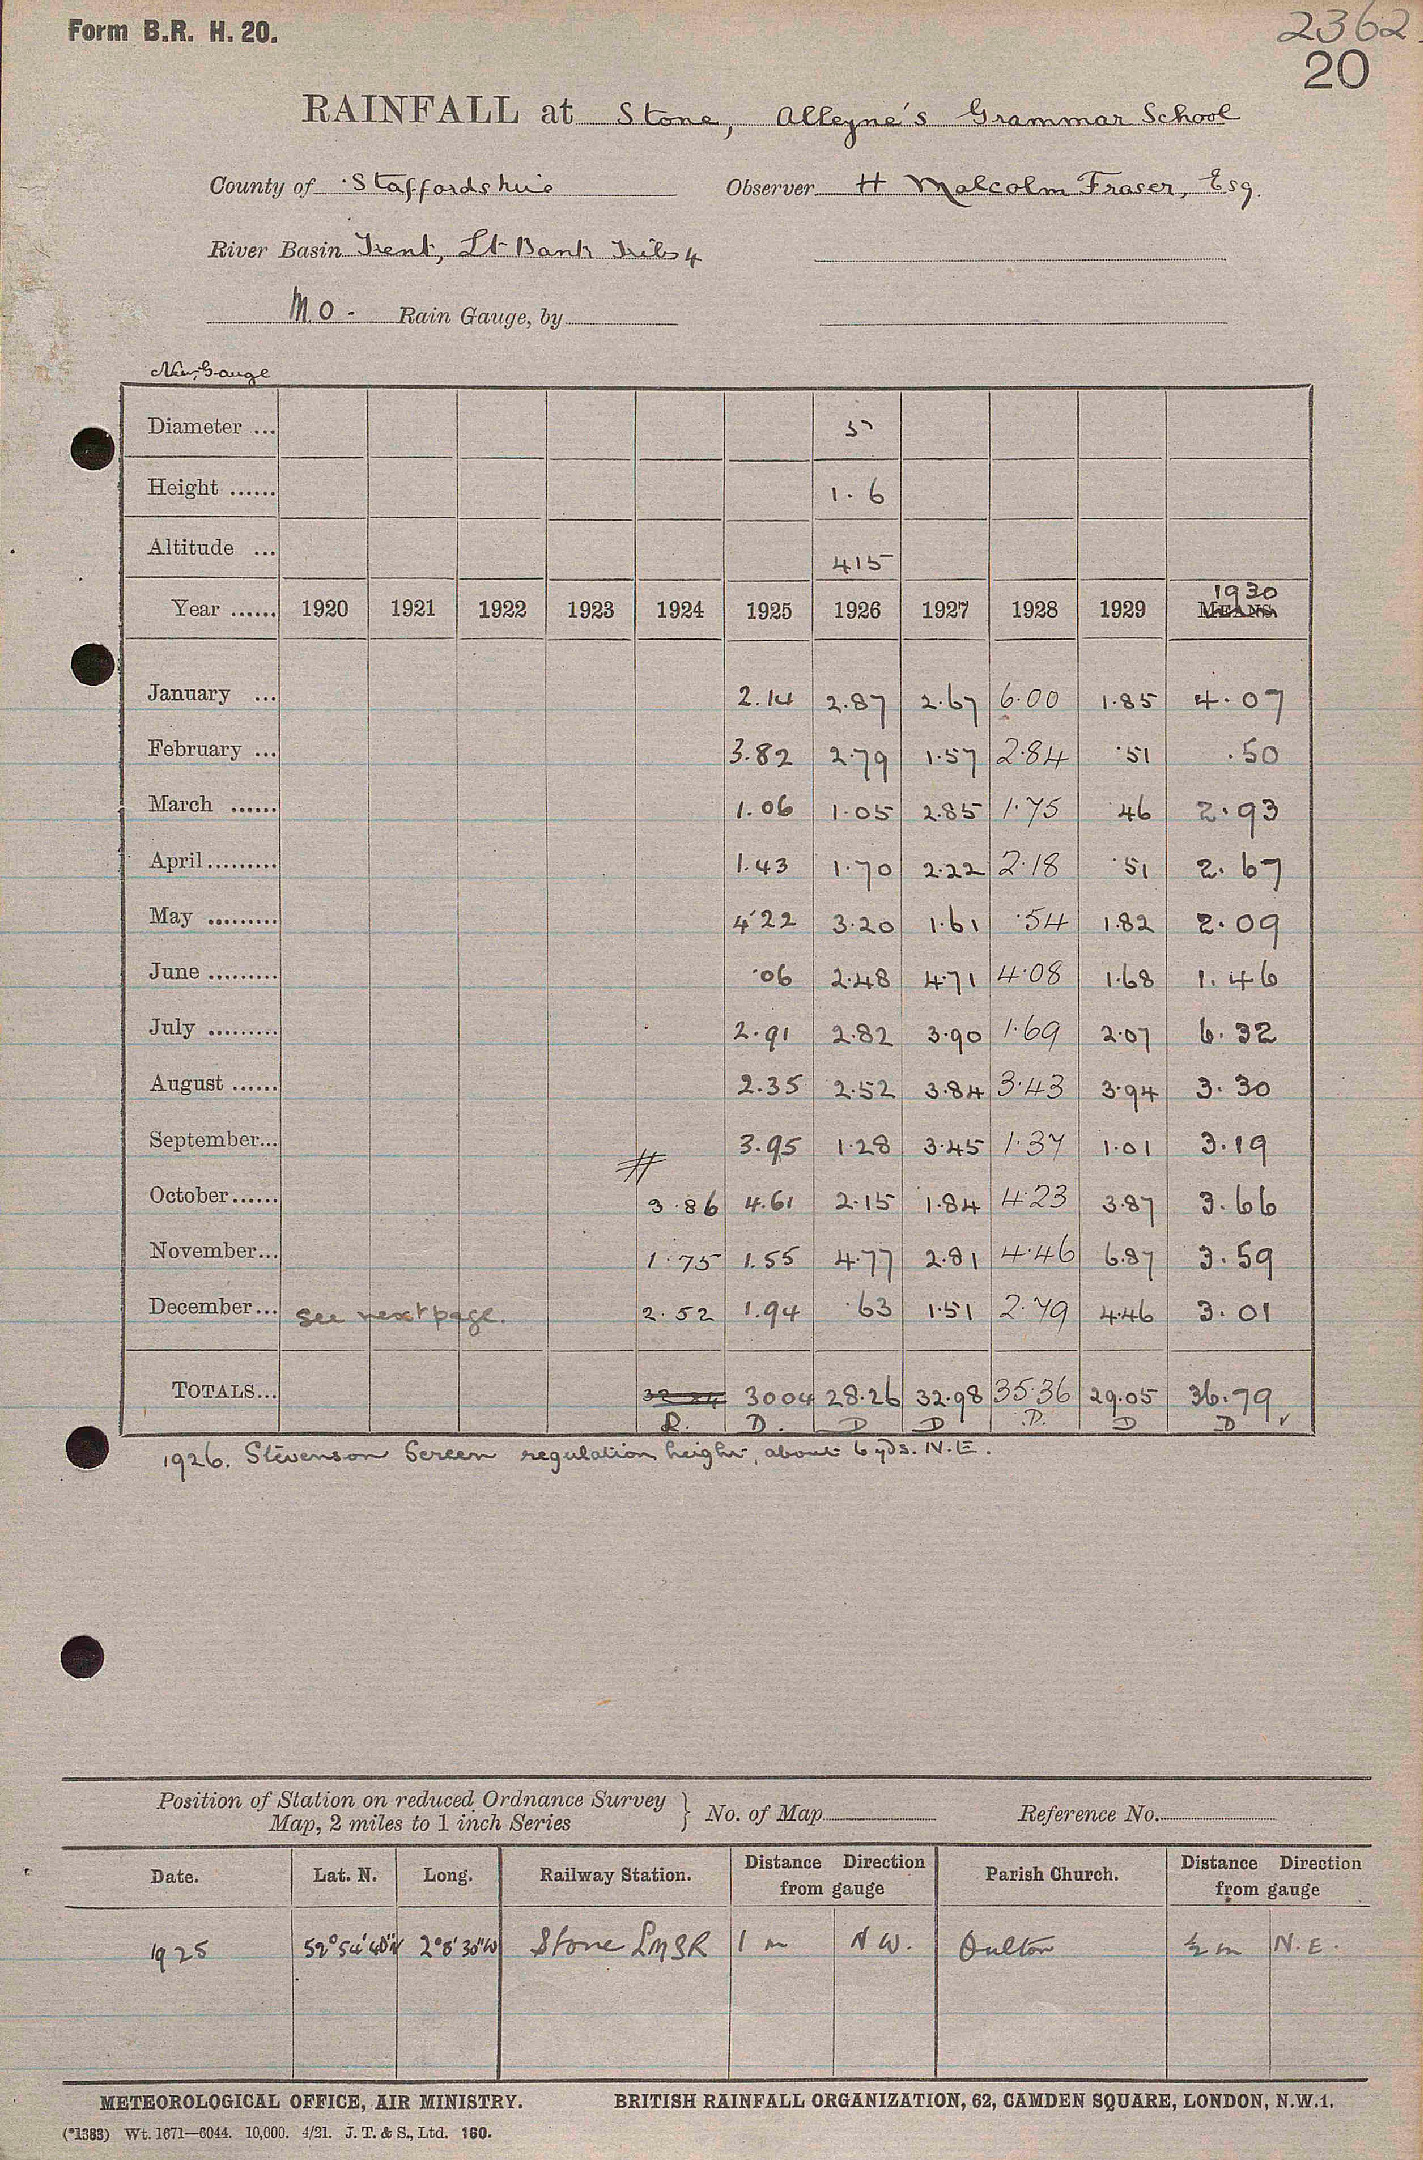 Form B.R. H. 20.
2362
20
RAINFALL at Stone, Alleyne's Grammar School
County of Staffordshire Observer H Malcolm Fraser, Esq.
River Basin Trent, Lt Bank Tribs 4
M.O. Rain Gauge, by
New Gauge
Diameter ... 5
Height ...... 1.6
Altitude ... 415
1930
Year ...... 1920 1921 1922 1923 1924 1925 1926 1927 1928 1929 MEANS.
January ... 2.14 2.87 2.67 6.00 1.85 4.07
February ... 3.82 2.79 1.57 2.84 .51 .50
March ...... 1.06 1.05 2.85 1.75 46 2.93
April......... 1.43 1.70 2.22 2.18 .51 2.67
May ......... 4.22 3.20 1.61 .54 1.82 2.09
June ......... .06 2.48 4.71 4.08 1.68 1.46
July ......... 2.91 2.82 3.90 1.69 2.07 6.32
August ...... 2.35 2.52 3.84 3.43 3.94 3.30
September... 3.95 1.28 3.45 1.37 1.01 3.19
October...... 3.86 4.61 2.15 1.84 4.23 3.87 3.66
November... 1.75 1.55 4.77 2.81 4.46 6.87 3.59
December... see next page. 2.52 1.94 .63 1.51 2.79 4.46 3.01
TOTALS... 3004 28.26 32.98 35.36 29.05 36.79
R. D. D D D. D D ✓
1926. Stevenson Screen regulation height, about 6 yds. N.E.
Position of Station on reduced Ordnance Survey Map, 2 miles to 1 inch Series } No. of Map Reference No.
Date. Lat. N. Long. Railway Station. Distance Direction from gauge Parish Church. Distance Direction from gauge
1925 52° 54' 40"N 2° 8' 30"W Stone LMSR 1 m N W. Oulton ½ m N.E.
METEOROLOGICAL OFFICE, AIR MINISTRY. BRITISH RAINFALL ORGANIZATION, 62, CAMDEN SQUARE, LONDON, N.W.1.
(*1383) Wt. 1671—6044. 10,000. 4/21. J. T. & S., Ltd. 160.